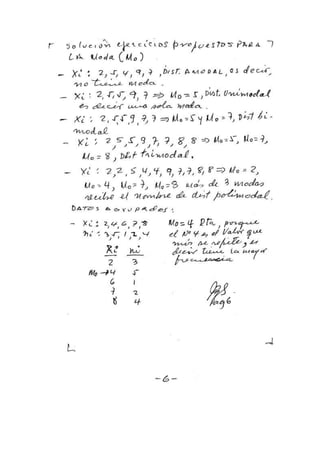 Solución ejercicios propuestos PARA
La Moda (Mo)
- Xi : 2, 5, 4, 9, 7 , Dist. AMODAL, es decir,
no tiene moda.
- Xi : 2, 5, 5, 9, 7 ⇒ Mo = 5, Dist. Unimodal
es decir una sola moda.
- Xi : 2, 5, 5, 9, 7, 7 ⇒ Mo = 5 y Mo = 7, Dist bi-
modal
- Xi : 2 5, 5, 9, 7, 7, 8, 8 ⇒ Mo = 5, Mo = 7,
Mo = 8, Dist trimodal.
- Xi : 2, 2, 5, 4, 4, 9, 7, 7, 8, 8 ⇒ Mo = 2,
Mo = 4, Mo = 7, Mo = 8 más de 3 modas
recibe el nombre de dist polimodal.
DATOS AGRUPADOS:
- Xi : 2, 4, 6, 7, 8 Mo = 4 Rta, porque
ni : 3, 5, 1, 2, 4 el Nº 4 es el valor que
más se repite, es
decir tiene la mayor
frecuencia.
Xi ni
2 3
Mo → 4 5
6 1
7 2
8 4
Pag 6
-6-